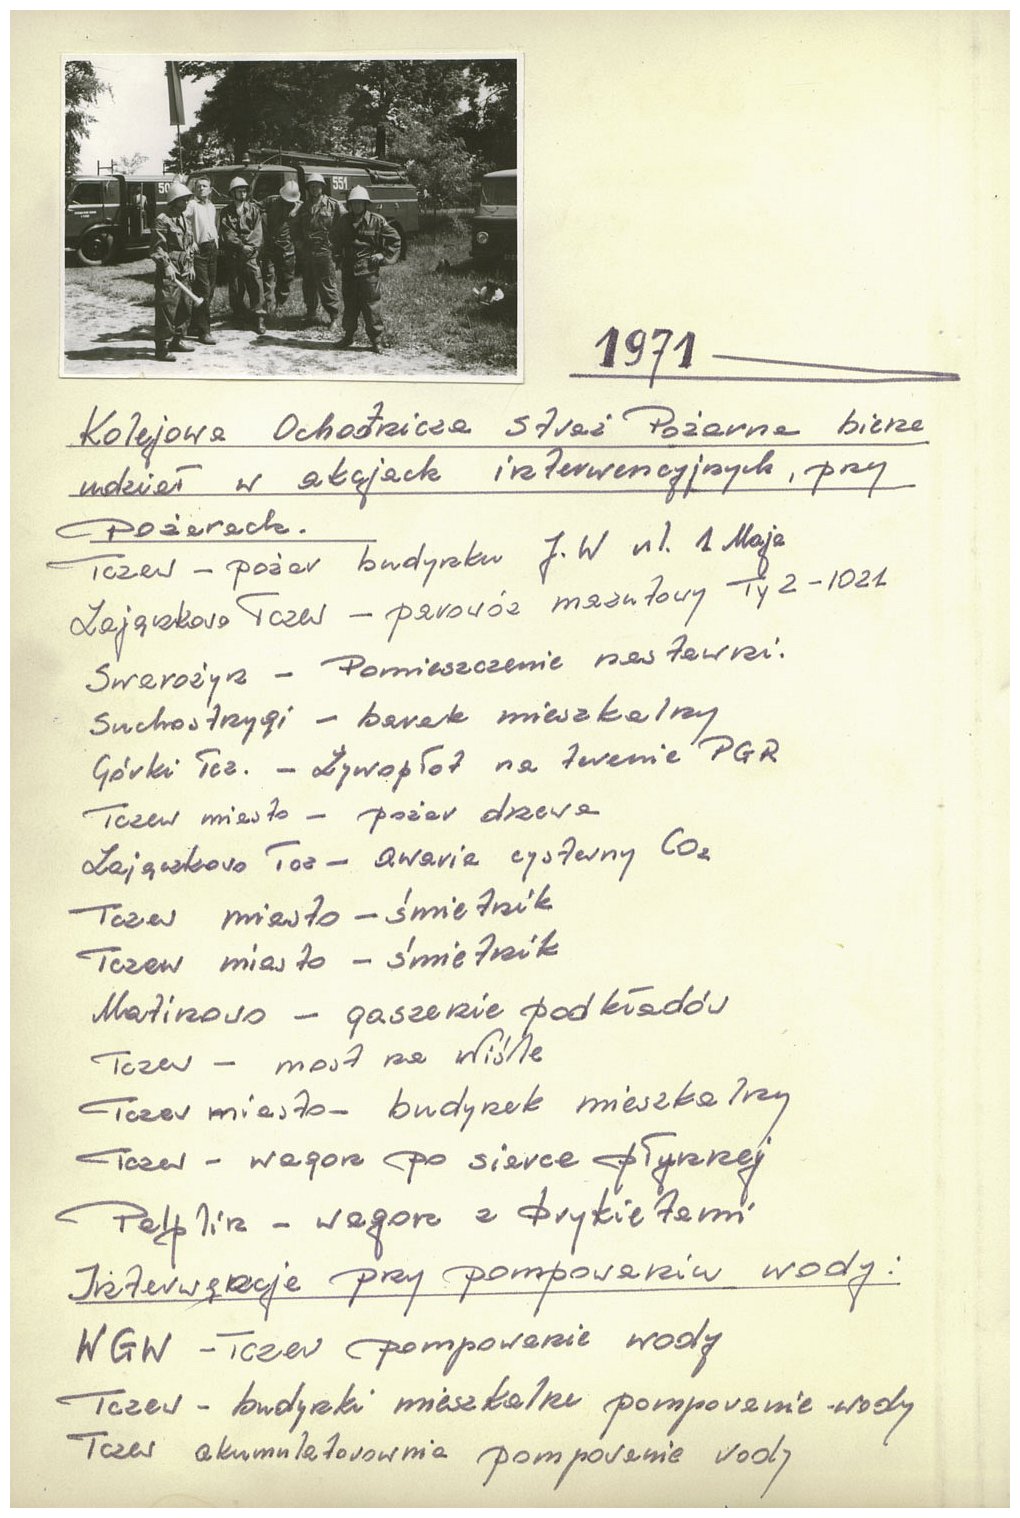 50
551
1971
Kolejowa Ochotnicza Straż Pożarna bierze
udział w akcjach interwencyjnych, przy
pożarach.
Tczew – pożar budynku J.W ul. 1 Maja
Zajączkowo Tczew – parowóz mazutowy Ty2-1021
Swarożyn – Pomieszczenie nastawni.
Suchostrzygi – barak mieszkalny
Górki Tcz. – Żywopłot na terenie PGR
Tczew miasto – pożar drzewa
Zajączkowo Tcz – awaria cysterny CO2
Tczew miasto – śmietnik
Tczew miasto – śmietnik
Malinowo – gaszenie podkładów
Tczew – most na Wiśle
Tczew miasto – budynek mieszkalny
Tczew – wagon po siarce płynnej
Pelplin – wagon z brykietami
Interwencje przy pompowaniu wody:
WGW – Tczew pompowanie wody
Tczew – budynki mieszkalne pompowanie wody
Tczew akumulatorownia pompowanie wody